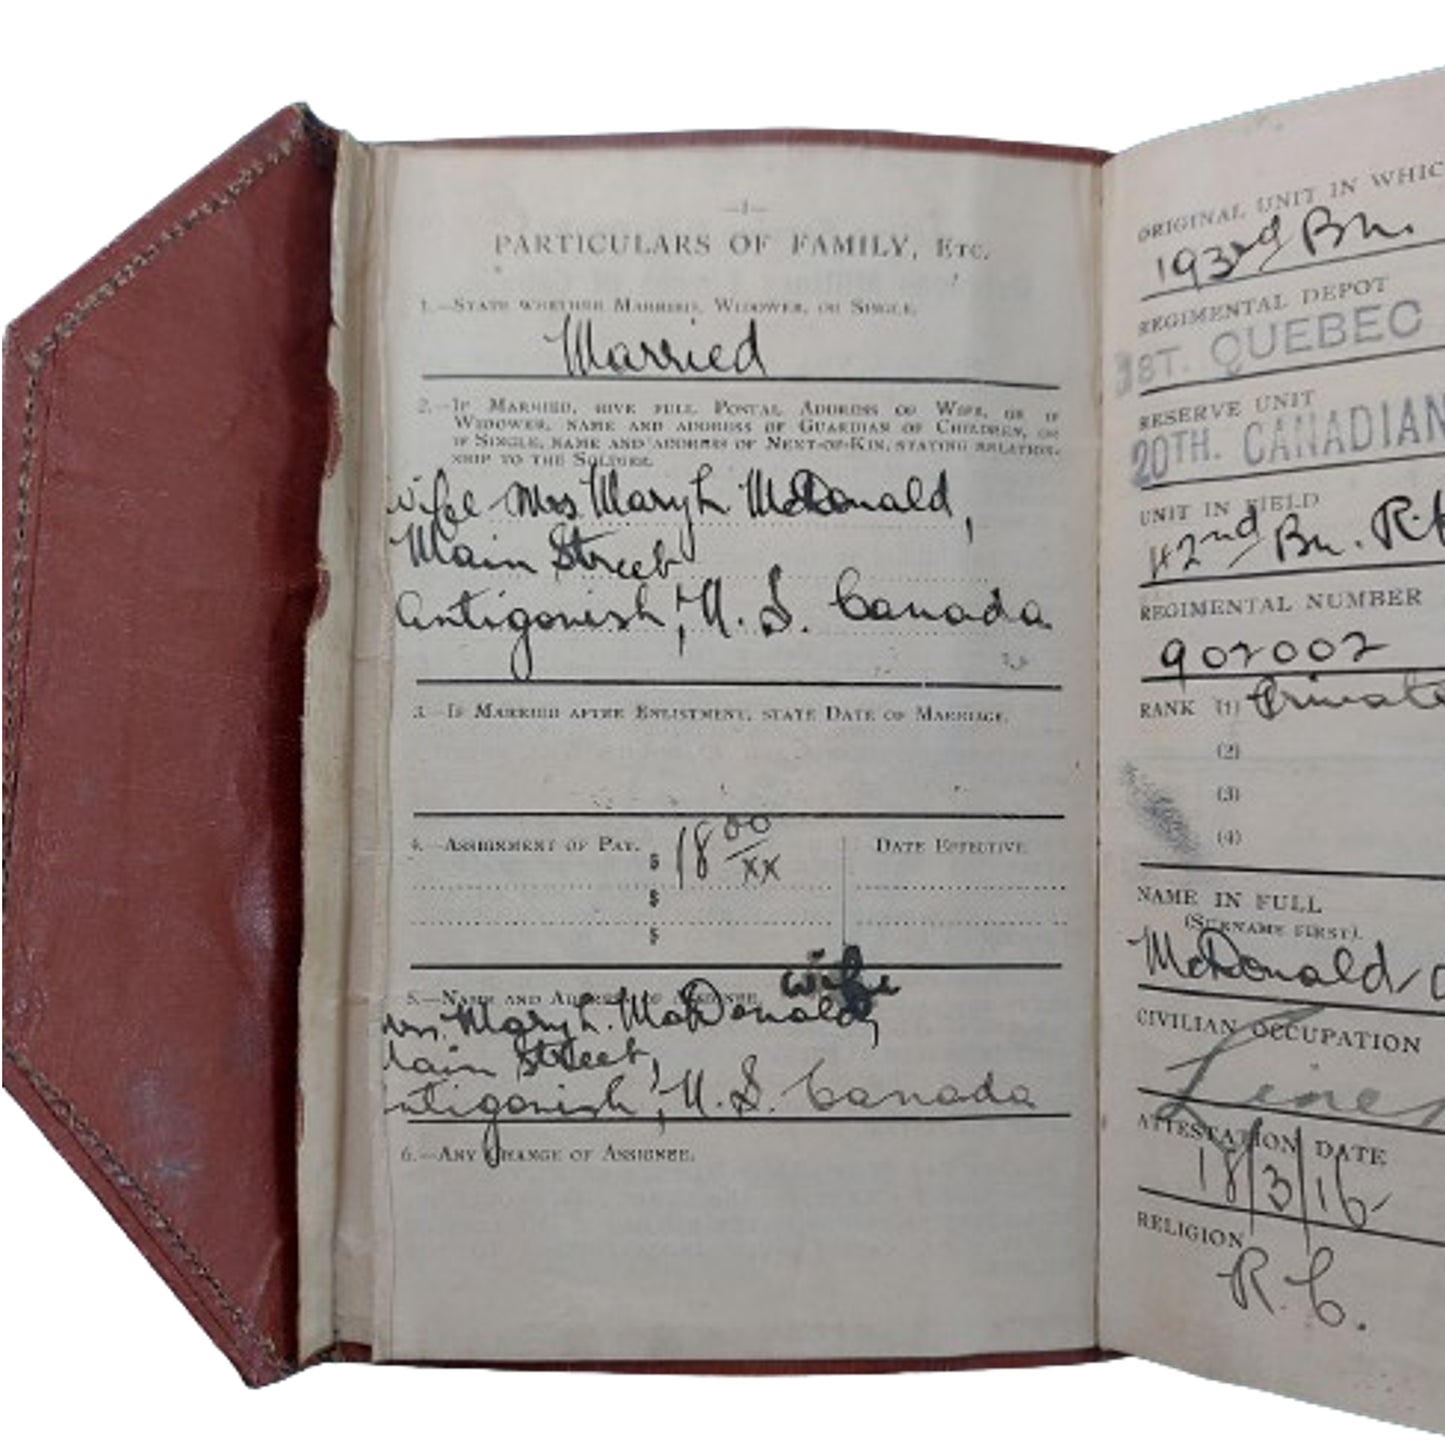 —1—
PARTICULARS OF FAMILY, ETC.
1.—STATE WHETHER MARRIED, WIDOWER, OR SINGLE.
Married
2.—IF MARRIED, GIVE FULL POSTAL ADDRESS OF WIFE, OR IF
WIDOWER, NAME AND ADDRESS OF GUARDIAN OF CHILDREN, OR
IF SINGLE, NAME AND ADDRESS OF NEXT-OF-KIN, STATING RELATION-
SHIP TO THE SOLDIER.
wife Mrs Mary L. McDonald,
Main Street
Antigonish, N. S. Canada
3.—IF MARRIED AFTER ENLISTMENT, STATE DATE OF MARRIAGE.
4.—ASSIGNMENT OF PAY. $ 18 00/xx DATE EFFECTIVE
$
$
5.—NAME AND ADDRESS OF ASSIGNEE. wife
Mrs. Mary L. McDonald,
Main Street,
Antigonish, N. S. Canada
6.—ANY CHANGE OF ASSIGNEE.
ORIGINAL UNIT IN WHIC
193rd Bn.
REGIMENTAL DEPOT
QUEBEC
RESERVE UNIT
20TH. CANADIAN
UNIT IN FIELD
42nd Bn. R.
REGIMENTAL NUMBER
902002
RANK (1) Private
(2)
(3)
(4)
NAME IN FULL
(SURNAME FIRST).
McDonald,
CIVILIAN OCCUPATION
ATTESTATION DATE
18/3/16
RELIGION
R. C.